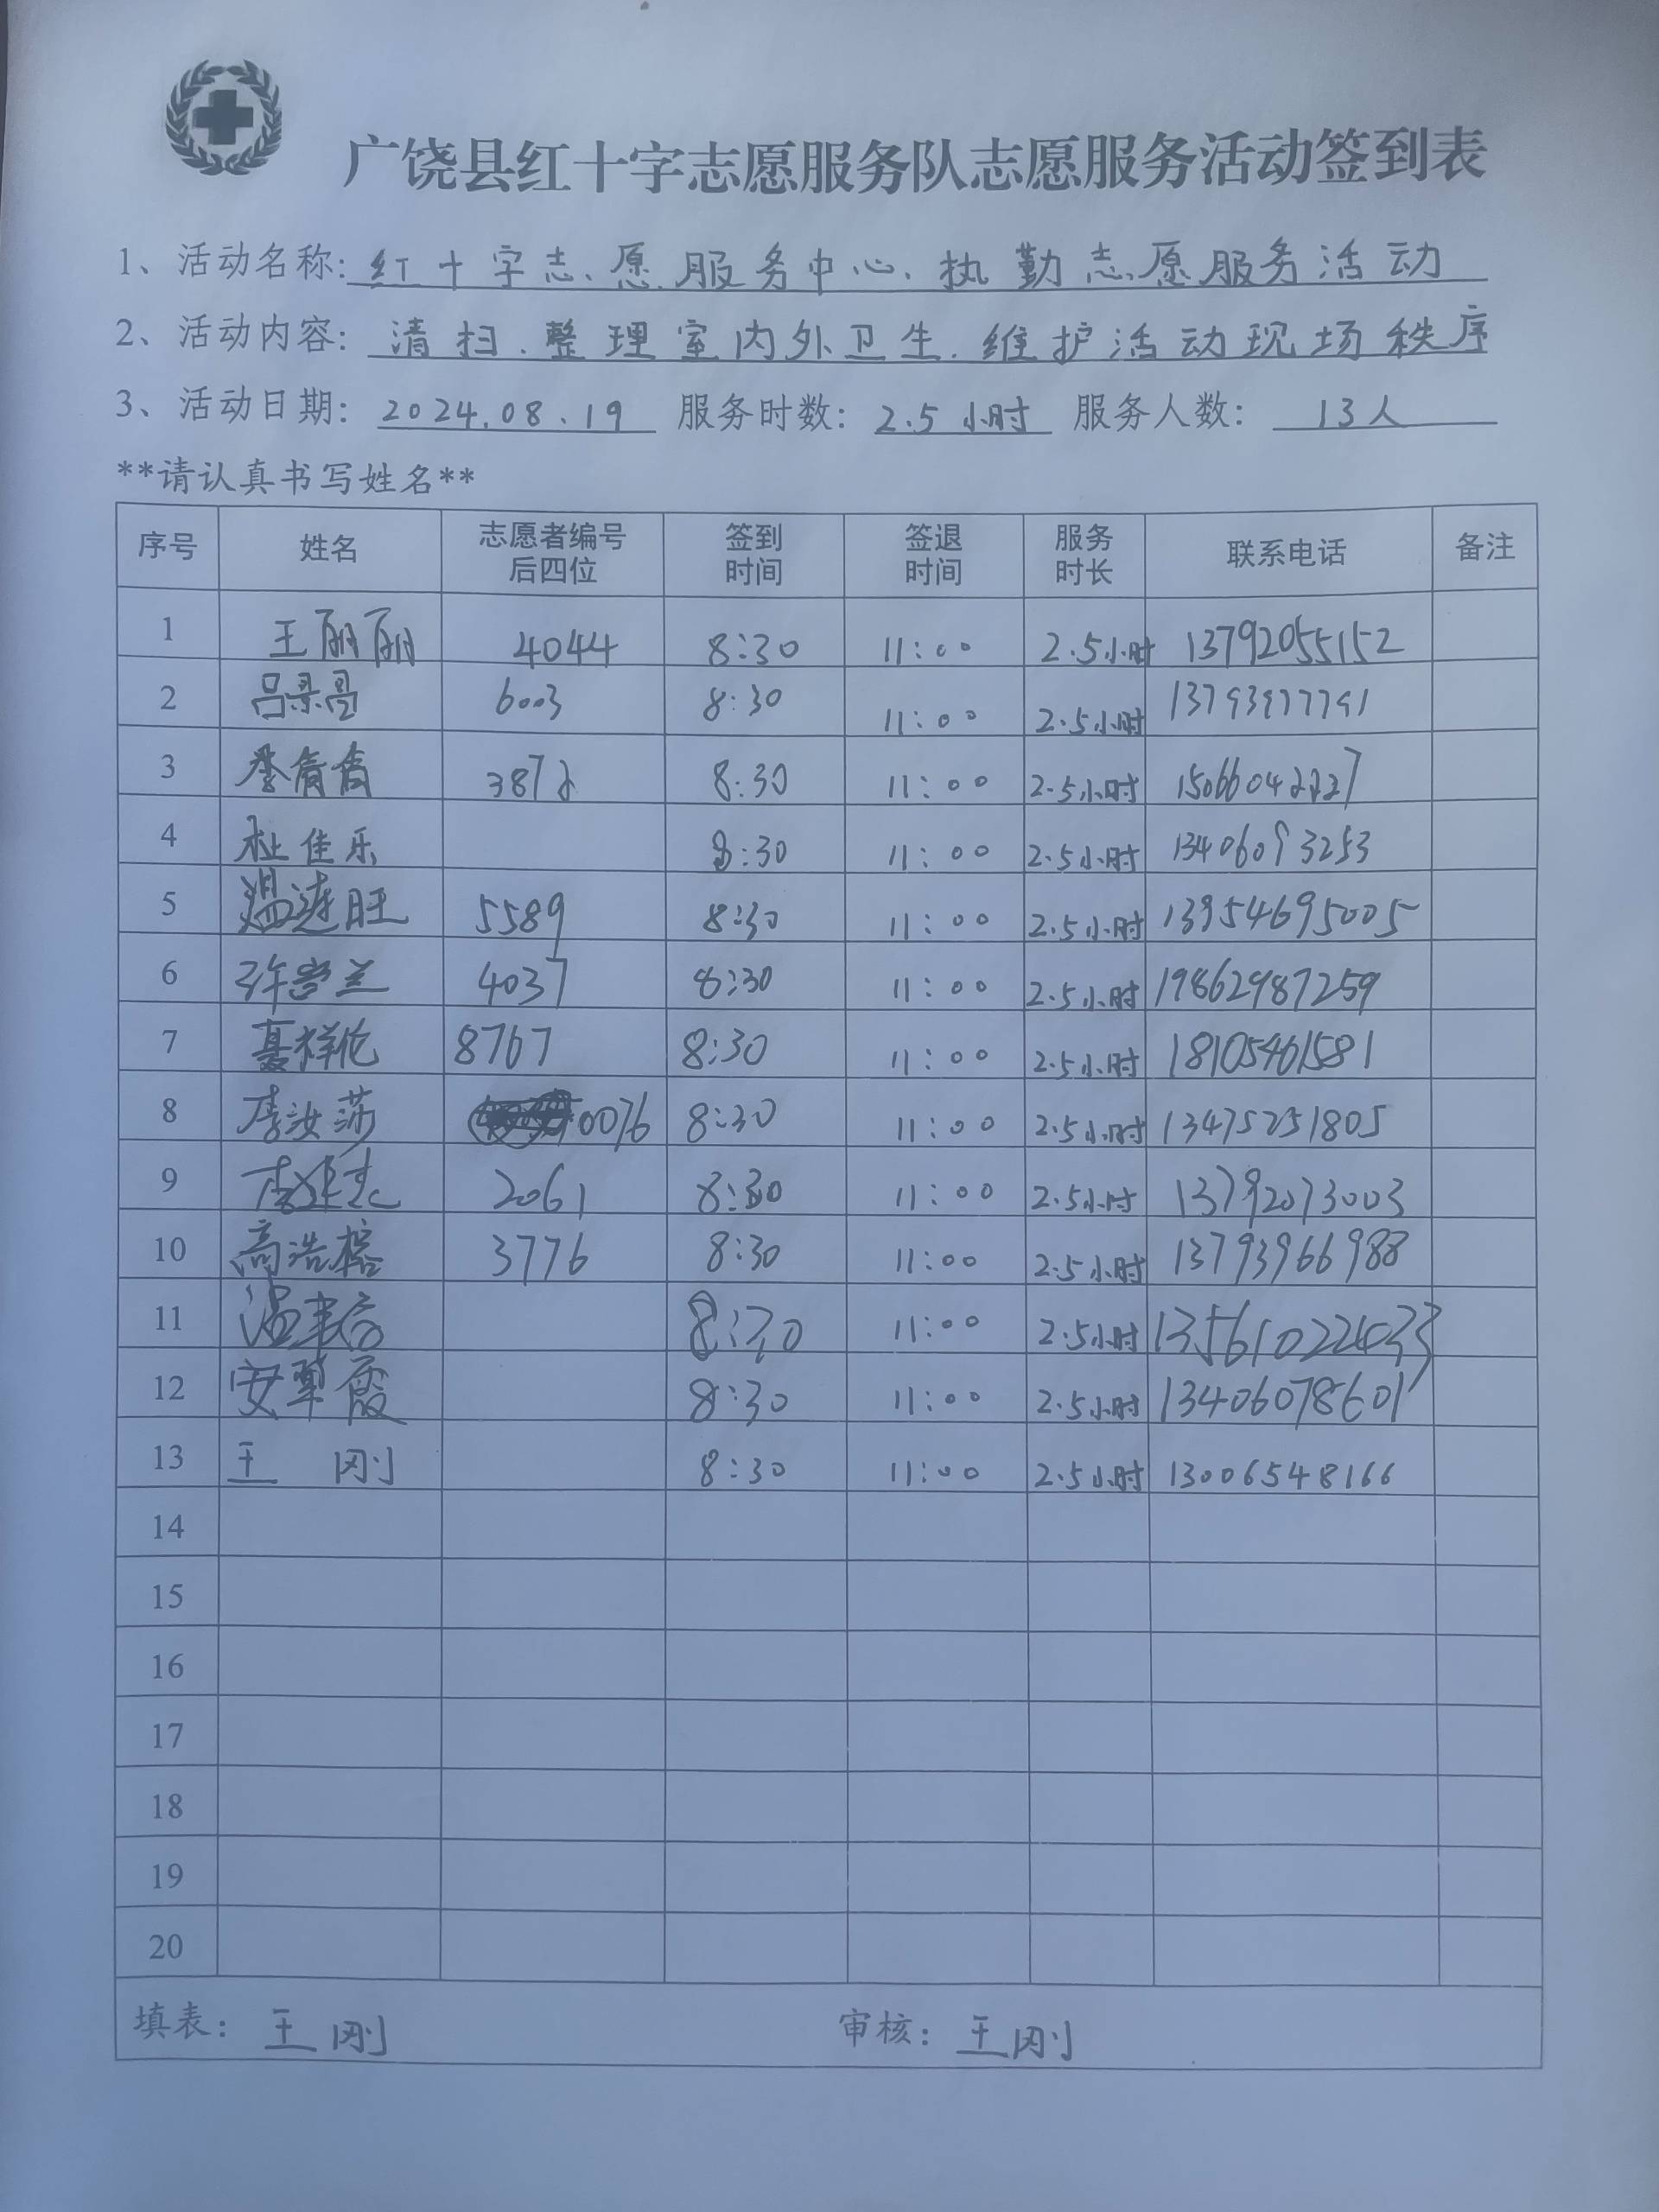 广饶县红十字志愿服务队志愿服务活动签到表
1、活动名称: 红十字志愿服务中心执勤志愿服务活动
2、活动内容: 清扫.整理室内外卫生.维护活动现场秩序
3、活动日期: 2024.08.19 服务时数: 2.5小时 服务人数: 13人
**请认真书写姓名**
序号 姓名 志愿者编号后四位 签到时间 签退时间 服务时长 联系电话 备注
1 王丽丽 4044 8:30 11:00 2.5小时 13792055152
2 吕景亮 6003 8:30 11:00 2.5小时 13793977791
3 李倩倩 3872 8:30 11:00 2.5小时 15066042227
4 杜佳乐 8:30 11:00 2.5小时 13406093253
5 温连旺 5589 8:30 11:00 2.5小时 13954695005
6 许兰 4037 8:30 11:00 2.5小时 19862987259
7 聂祥伦 8767 8:30 11:00 2.5小时 18105461581
8 李汝莎 0076 8:30 11:00 2.5小时 13475251805
9 李 2061 8:30 11:00 2.5小时 13792073003
10 高浩榕 3776 8:30 11:00 2.5小时 13793966988
11 温 8:30 11:00 2.5小时
12 安翠霞 8:30 11:00 2.5小时 13406078601
13 王刚 8:30 11:00 2.5小时 13006548166
14
15
16
17
18
19
20
填表: 王刚 审核: 王刚